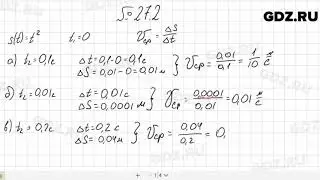 GDZ.RU
№27.2
S(t)=t² t₁=0 υср = ΔS/Δt
а) t₂=0,1c Δt=0,1-0=0,1c ΔS=0,01-0=0,01м } υср = 0,01/0,1 = 1/10 м/c
б) t₂=0,01c Δt=0,01c ΔS=0,0001м } υср = 0,0001/0,01 = 0,01 м/c
в) t₂=0,2c Δt=0,2c ΔS=0,04м } υср = 0,04/0,2 = 0,